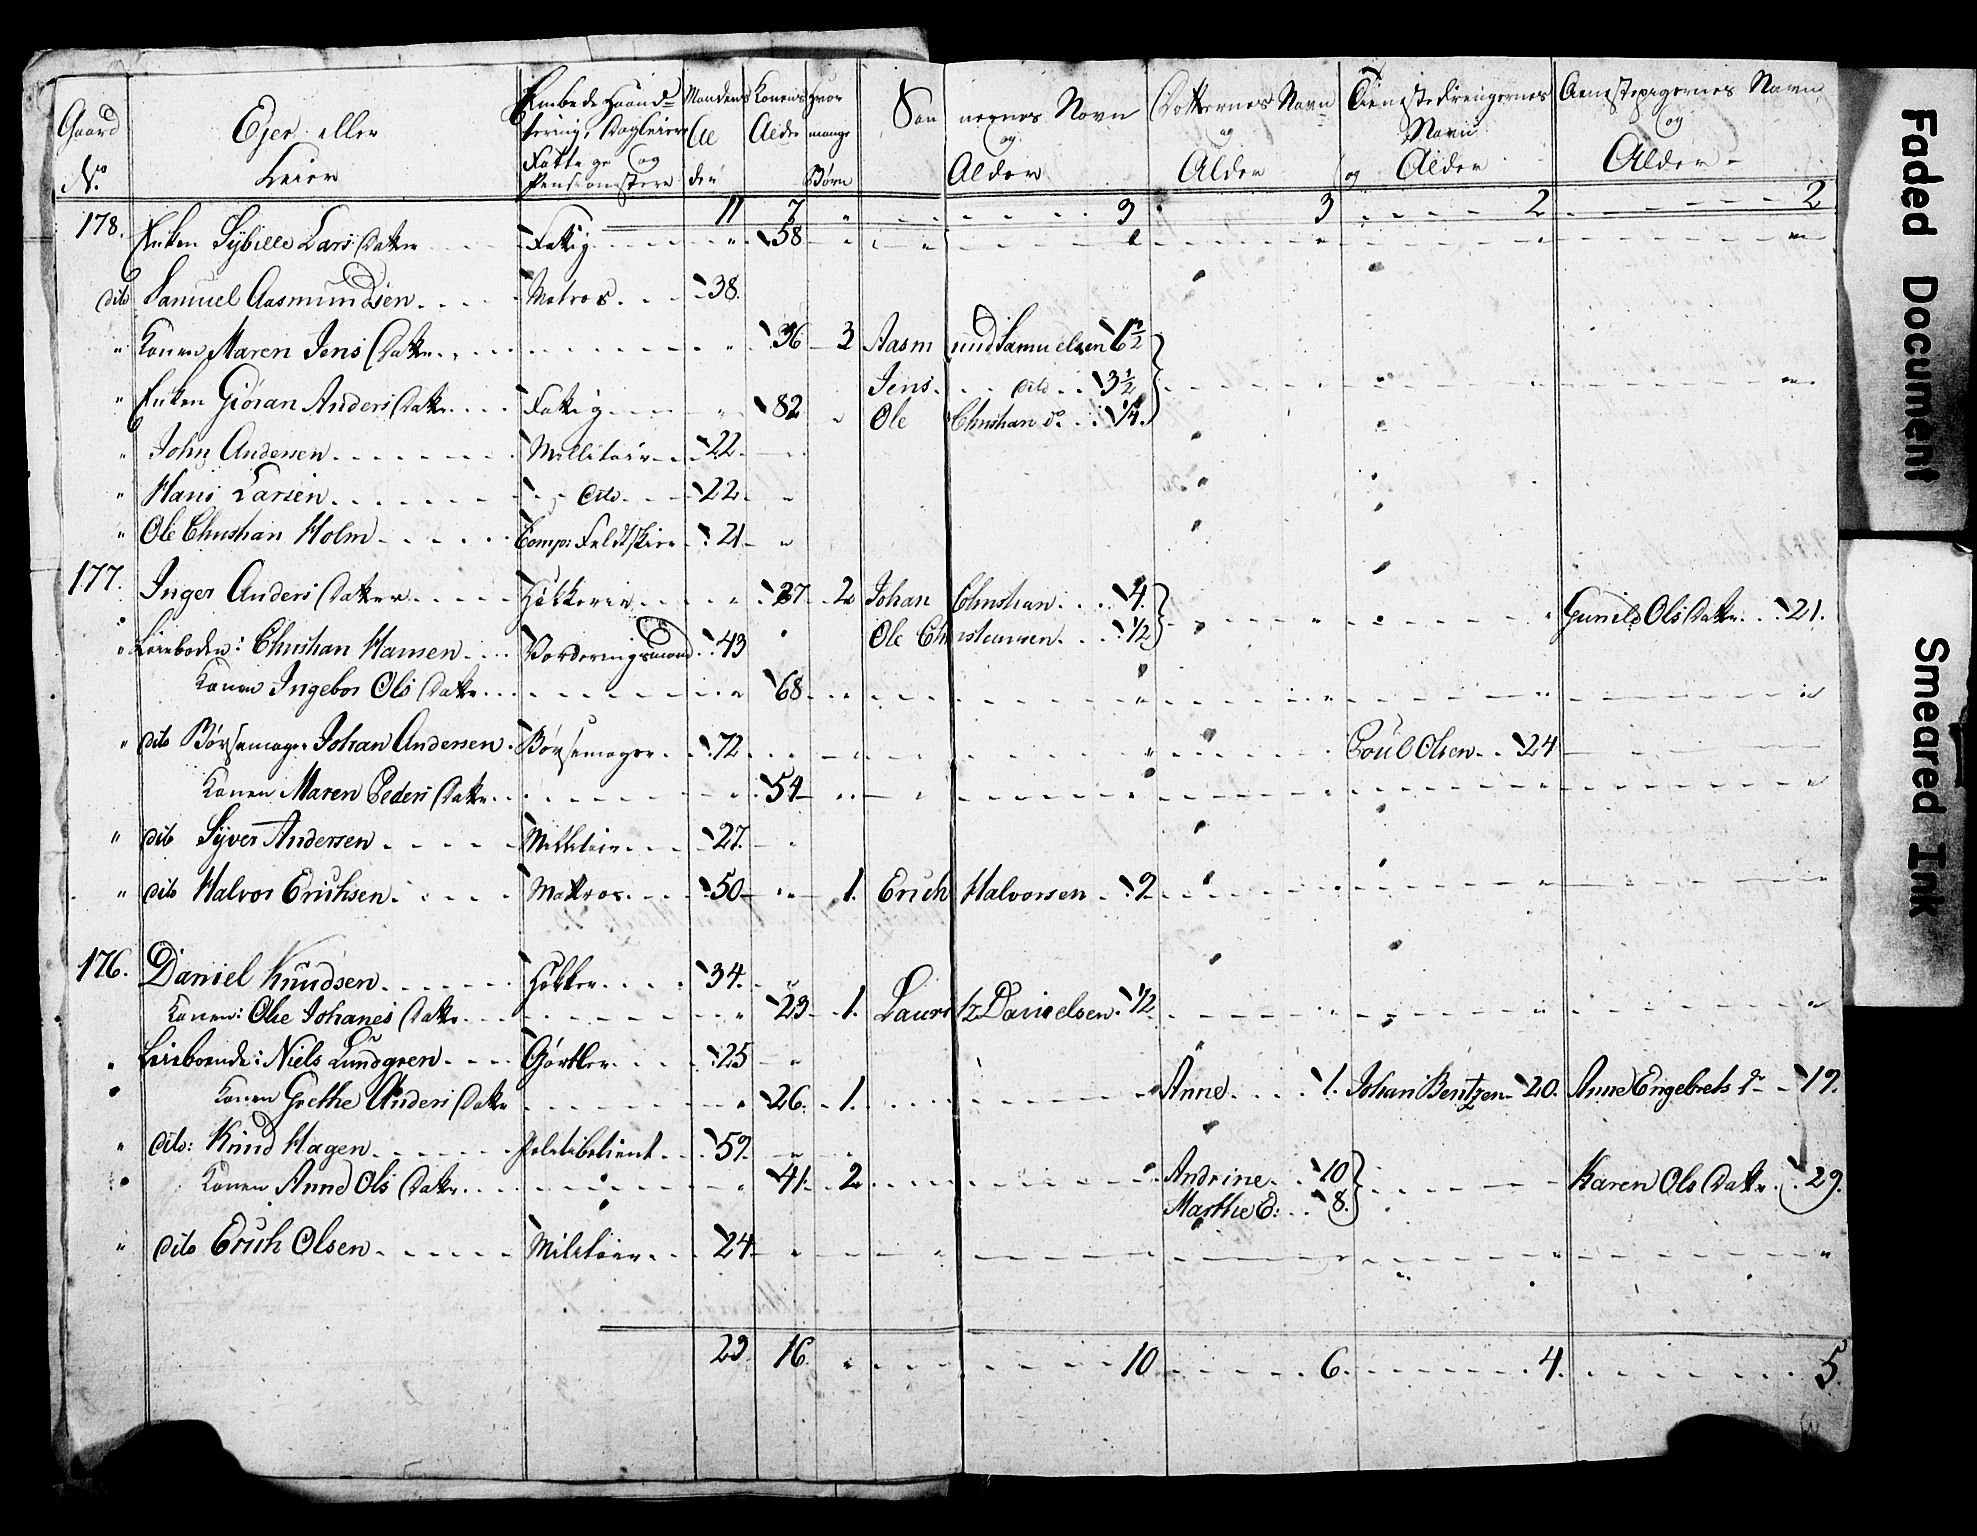 Gaard No. | Ejer eller Leier | Embede Haandtering, Dagleiere Fattige og Pensionistere | Mandens Alder | Konens Alder | Hvor mange Børn | Sønnernes Navn og Alder | Døtternes Navn og Alder | Tienestedrengernes Navn og Alder | Tienestepigernes Navn og Alder
11 | 7 | " | 3 | 2 | 2
178. Enken Sÿbille Lars Datter | Fattig | " | 58 | "
dito Samuel Aasmundsen | Matros | 38.
" Konen Maren Jens Datter | " | 36 | 3 | Aasmund Samuelsen 6½
Jens dito 3½
" Enken Giöran Anders Datter | Fattig | " | 82 | " | Ole Christian do. ¼
" John Andersen | Militair | 22
" Hans Larsen | dito | 22 | "
" Ole Christian Holm | Comp: Feldtskier | 21 | "
177. Inger Anders Datter | Høkkerie | " | 37 | 2 | Johan Christian 4. | Gunild Ols Datter 21.
" Leieboden: Christian Hansen | Vurderingsmand | 43 | " | Ole Christiansen ½
Konen Ingebor Ols Datter | " | 68 | "
" dito Børsemager Johan Andersen | Børsemager | 72 | Poul Olsen 24
Konen Maren Peders Datter | " | 54 | "
" dito Sÿver Andersen | Militair | 27. | "
" dito Halvor Erichsen | Mattros | 50 | " | 1. | Erich Halvorsen 9
176. Daniel Knudsen | Høkker | 34. | "
Konen: Olie Johanes Datter | " | 23 | 1. | Lauritz Danielsen ½
" Leieboende: Niels Lundgren | Gørtler | 25 | "
Konen Grethe Anders Datter | " | 26. | 1. | " | Anne 1. | Johan Bentzen 20. | Anne Engebrets D 19.
" dito: Knud Hagen | Politibetient | 59. | "
Konen Anne Ols Datter | " | 41. | 2 | Andrine 10 | Karen Ols Datter 29.
Marthe E: 8.
" dito Erich Olsen | Militair | 24 | "
16. | " | 10 | 6. | 4. | 5.
Faded Document
Smeared Ink